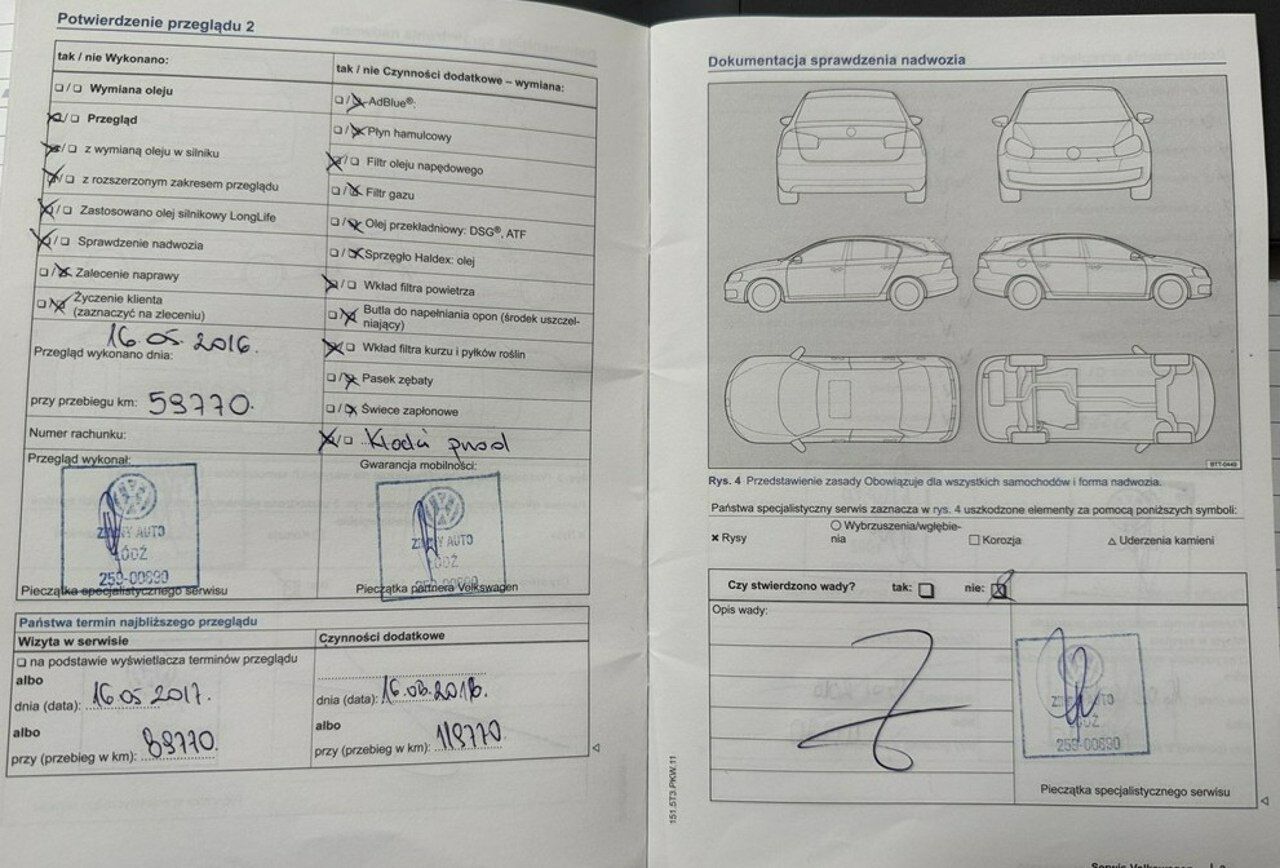 Potwierdzenie przeglądu 2
tak / nie Wykonano:
❑/❑ Wymiana oleju
❑/❑ Przegląd
❑/❑ z wymianą oleju w silniku
❑/❑ z rozszerzonym zakresem przeglądu
❑/❑ Zastosowano olej silnikowy LongLife
❑/❑ Sprawdzenie nadwozia
❑/❑ Zalecenie naprawy
❑/❑ Życzenie klienta
(zaznaczyć na zleceniu)
16.05.2016.
Przegląd wykonano dnia:
przy przebiegu km: 59770.
Numer rachunku:
Przegląd wykonał:
AUTO
ŁÓDŹ
259-00690
Pieczątka specjalistycznego serwisu
tak / nie Czynności dodatkowe – wymiana:
❑/❑ AdBlue®:
❑/❑ Płyn hamulcowy
❑/❑ Filtr oleju napędowego
❑/❑ Filtr gazu
❑/❑ Olej przekładniowy: DSG®, ATF
❑/❑ Sprzęgło Haldex: olej
❑/❑ Wkład filtra powietrza
❑/❑ Butla do napełniania opon (środek uszczel-
niający)
❑/❑ Wkład filtra kurzu i pyłków roślin
❑/❑ Pasek zębaty
❑/❑ Świece zapłonowe
❑/❑ Klocki przod
Gwarancja mobilności:
AUTO
ŁÓDŹ
259-00690
Pieczątka partnera Volkswagen
Państwa termin najbliższego przeglądu
Wizyta w serwisie
❑ na podstawie wyświetlacza terminów przeglądu
albo
dnia (data): 16 05 2017.
albo
przy (przebieg w km): 89770.
Czynności dodatkowe
dnia (data):
albo
przy (przebieg w km): 119770.
Dokumentacja sprawdzenia nadwozia
BTT-0449
Rys. 4 Przedstawienie zasady Obowiązuje dla wszystkich samochodów i forma nadwozia.
Państwa specjalistyczny serwis zaznacza w rys. 4 uszkodzone elementy za pomocą poniższych symboli:
× Rysy
○ Wybrzuszenia/wgłębie-
nia
□ Korozja
△ Uderzenia kamieni
Czy stwierdzono wady? tak: ❑ nie: ❑
Opis wady:
AUTO
ŁÓDŹ
259-00690
Pieczątka specjalistycznego serwisu
151.5T3.PKW.11
Serwis Volkswagen